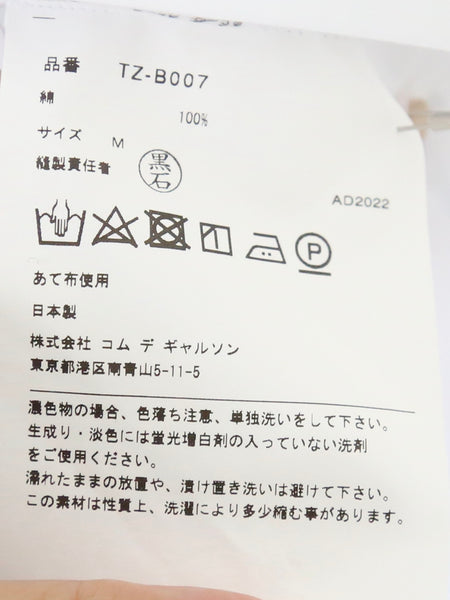 品番 TZ-B007
綿
100%
サイズ M
縫製責任者 黒石
AD2022
P
あて布使用
日本製
株式会社 コム デ ギャルソン
東京都港区南青山5-11-5
濃色物の場合、色落ち注意、単独洗いをして下さい。
生成り・淡色には蛍光増白剤の入っていない洗剤
をご使用ください。
濡れたままの放置や、漬け置き洗いは避けて下さい。
この素材は性質上、洗濯により多少縮む事があります。